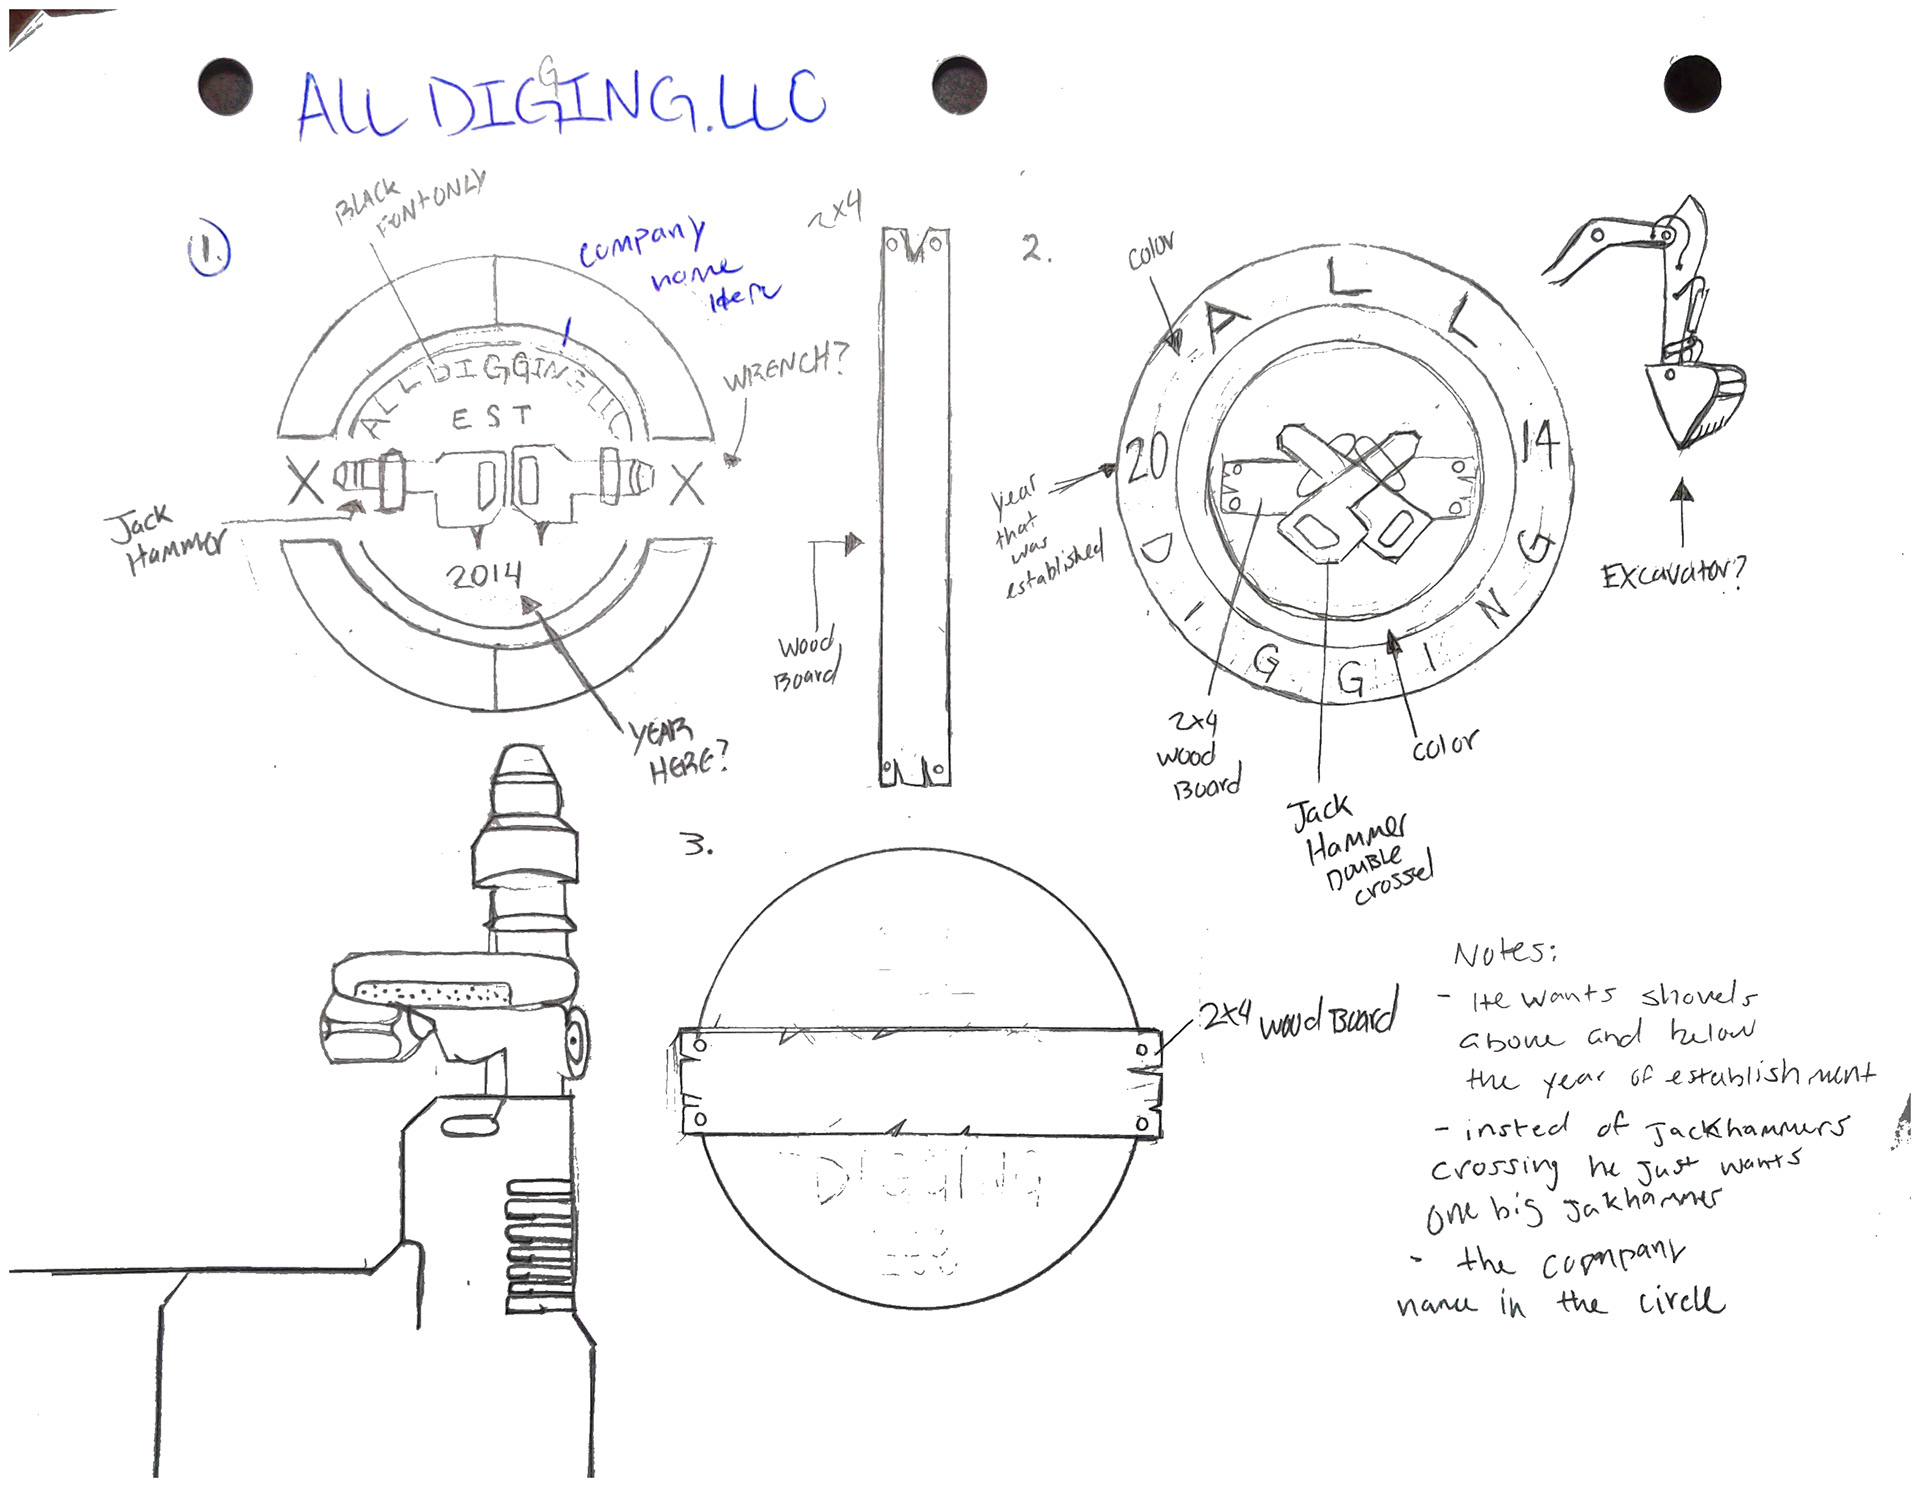 ALL DIGGING.LLC
BLACK
FONT ONLY
1.
company
name
Here
ALL DIGGING LLC
EST
WRENCH?
X
X
Jack
Hammer
2014
YEAR
HERE?
2x4
Wood
Board
2.
color
A L L
20
14
D I G G I N G
year
that
was
established
2x4
wood
Board
Jack
Hammer
Double
crossed
color
Excavator?
3.
2x4 wood Board
DIGGING
Notes:
- He wants shovels
above and below
the year of establishment
- insted of Jackhammers
crossing he just wants
one big jakhammer
- the company
name in the circle